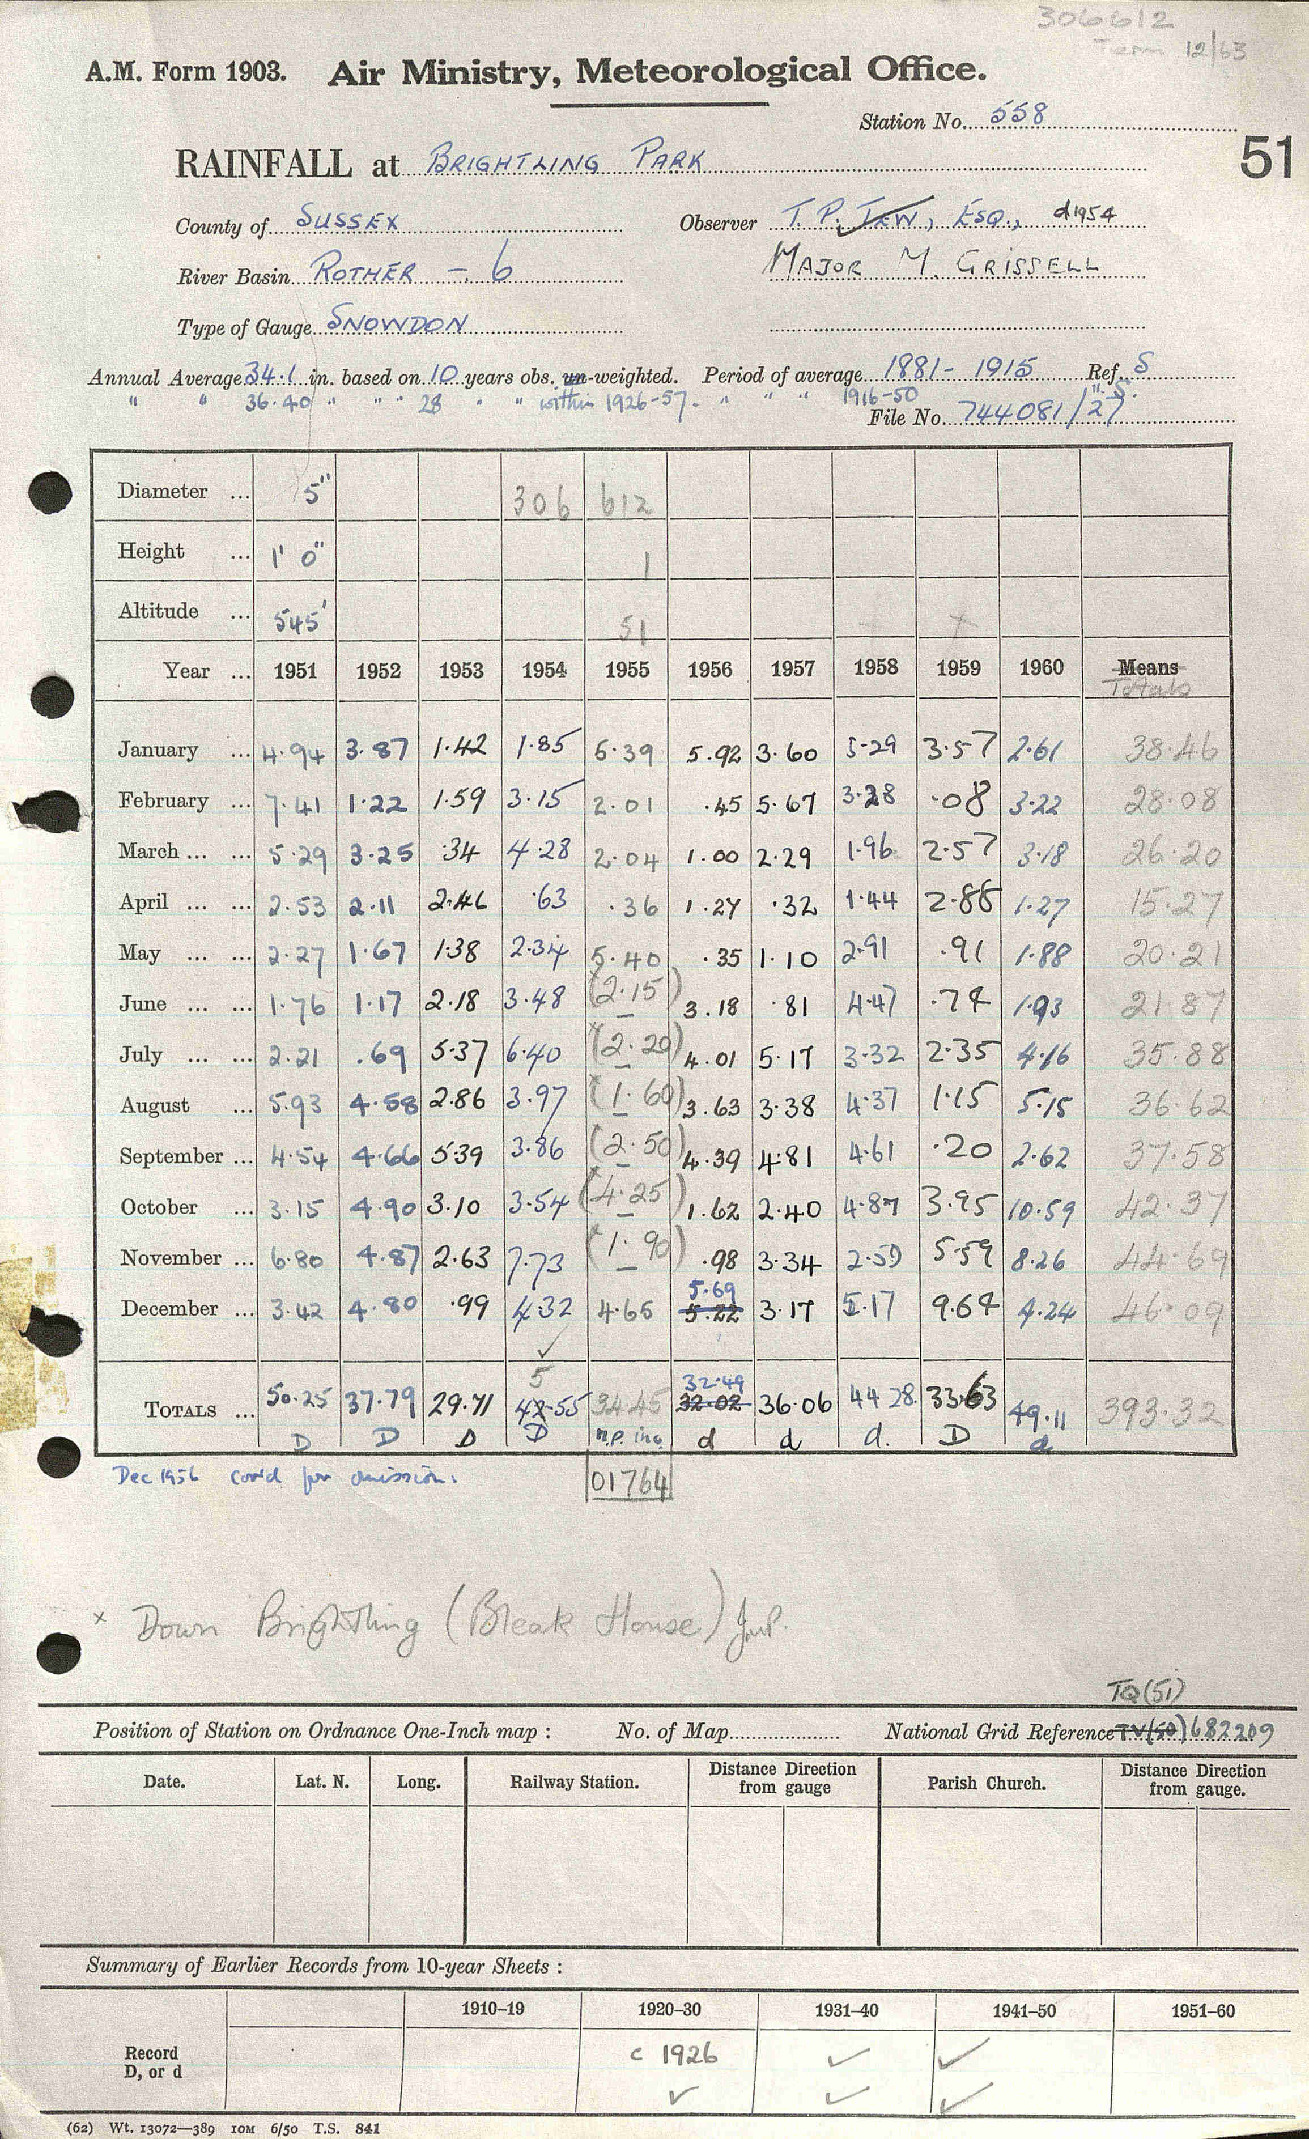 306612
12/63
A.M. Form 1903. Air Ministry, Meteorological Office.
Station No. 558
51
RAINFALL at BRIGHTLING PARK
County of SUSSEX Observer T. P. JEW, ESQ., d1954
River Basin ROTHER - 6 MAJOR M. GRISSELL
Type of Gauge SNOWDON
Annual Average 34.1 in. based on 10 years obs. un-weighted. Period of average 1881-1915 Ref. S
" " 36.40 " " " 28 " " within 1926-57. " " " 1916-50 " S.
File No. 744081/27
Diameter ... 5" 306 612
Height ... 1' 0" 1
Altitude ... 545' 51
Year ... 1951 1952 1953 1954 1955 1956 1957 1958 1959 1960 Means
Totals
January ... 4.94 3.87 1.42 1.85 5.39 5.92 3.60 5.29 3.57 2.61 38.46
February ... 7.41 1.22 1.59 3.15 2.01 .45 5.67 3.28 .08 3.22 28.08
March ... ... 5.29 3.25 .34 4.28 2.04 1.00 2.29 1.96 2.57 3.18 26.20
April ... ... 2.53 2.11 2.46 .63 .36 1.27 .32 1.44 2.88 1.27 15.27
May ... ... 2.27 1.67 1.38 2.34 5.40 .35 1.10 2.91 .91 1.88 20.21
June ... ... 1.76 1.17 2.18 3.48 (2.15) 3.18 .81 4.47 .74 1.93 21.87
July ... ... 2.21 .69 5.37 6.40 (2.20) 4.01 5.17 3.32 2.35 4.16 35.88
August ... 5.93 4.58 2.86 3.97 (1.60) 3.63 3.38 4.37 1.15 5.15 36.62
September ... 4.54 4.66 5.39 3.86 (2.50) 4.39 4.81 4.61 .20 2.62 37.58
October ... 3.15 4.90 3.10 3.54 (4.25) 1.62 2.40 4.87 3.95 10.59 42.37
November ... 6.80 4.87 2.63 7.73 (1.90) .98 3.34 2.59 5.59 8.26 44.69
5.69
December ... 3.42 4.80 .99 4.32 4.65 5.22 3.17 5.17 9.64 4.24 46.09
5 32.49
TOTALS ... 50.25 37.79 29.71 42.55 34.45 32.02 36.06 44.28 33.63 49.11 393.32
D D D D n.p. inc d d d. D d
Dec 1956 corr'd for omission. 01764
x Down Brightling (Bleak House) Jul.
TQ(51)
Position of Station on Ordnance One-Inch map : No. of Map National Grid Reference TV(50) 682209
Date. Lat. N. Long. Railway Station. Distance Direction from gauge Parish Church. Distance Direction from gauge.
Summary of Earlier Records from 10-year Sheets :
1910–19 1920–30 1931–40 1941–50 1951–60
Record D, or d c 1926 ✓ ✓
✓ ✓ ✓
(62) Wt. 13072—389 10M 6/50 T.S. 841